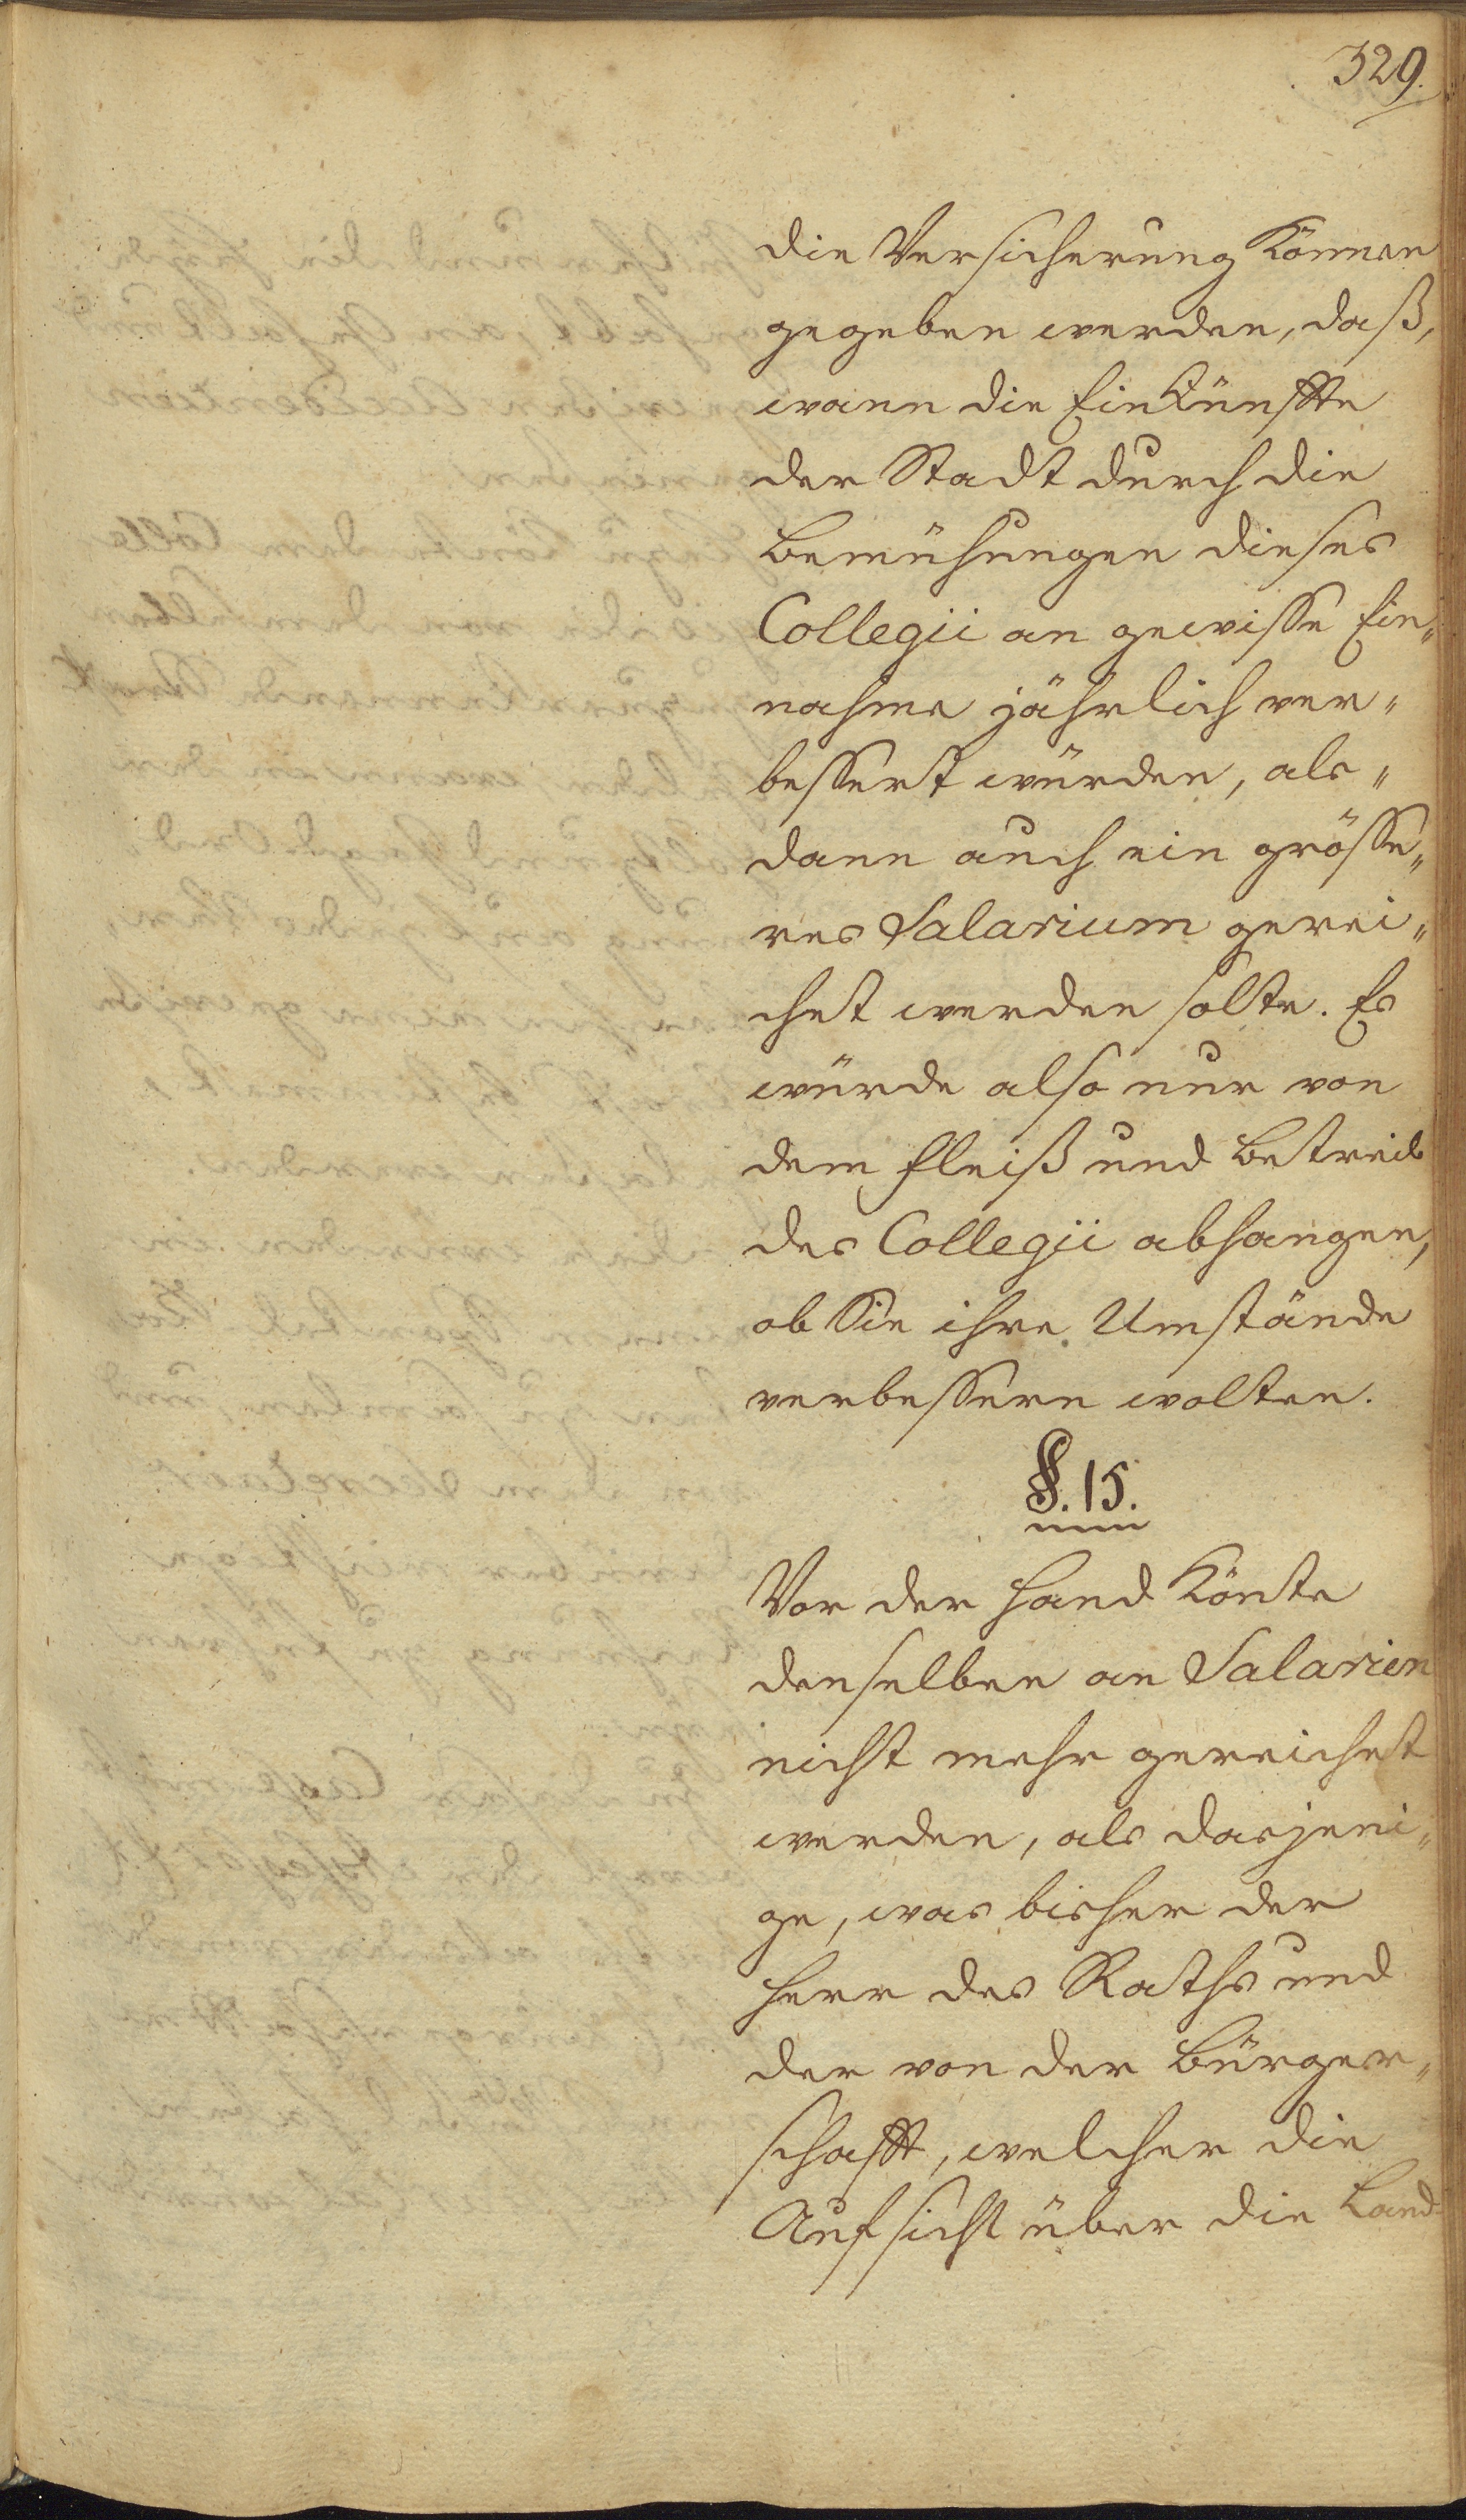 329.
die Versicherung können
gegeben werden, daß,
wann die Einkünffte
der Stadt durch die
Bemühungen dieses
Collegii an gewisse Ein„
nahme jährlich ver„
bessert würden, als„
dann auch ein grösse„
res Salarium gerei„
chet werden solte. Es
würde also nur von
dem Fleiß und Betrieb
des Collegii abhangen,
ob Sie ihre Umstände
verbessern wolten.
§. 15.
Vor der Hand könte
denselben an Salarien
nicht mehr gereichet
werden, als dasjeni„
ge, was bisher der
Herr des Raths und
der von der Bürger„
schafft, welcher die
Aufsicht über die Land